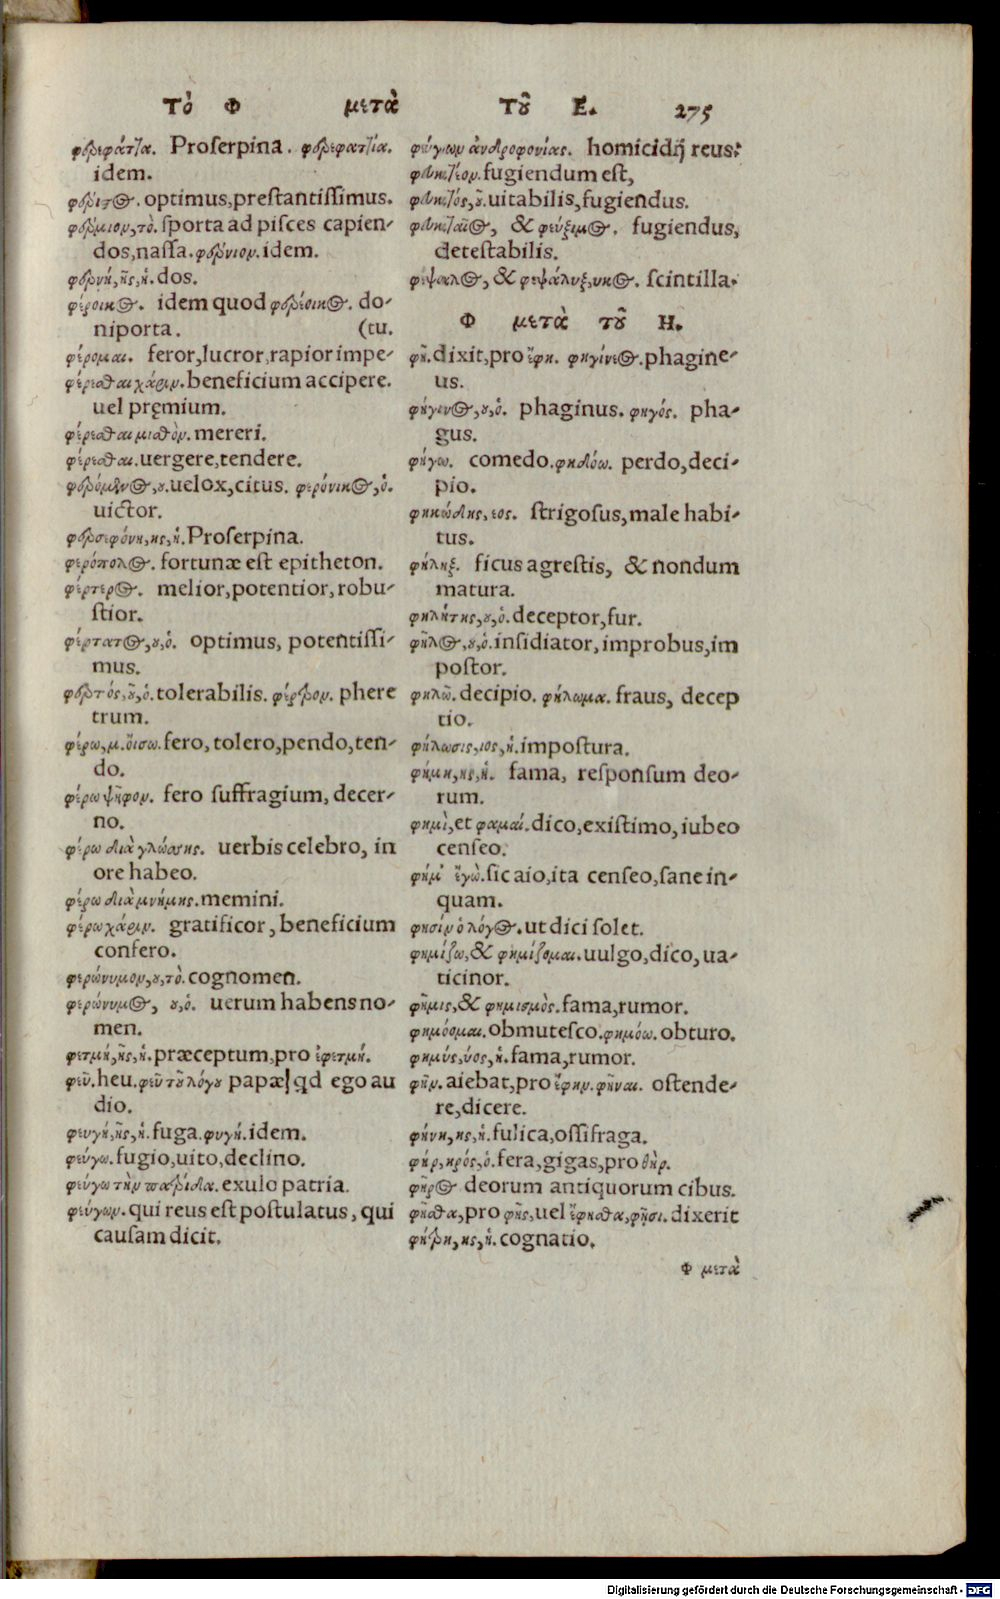 Τὸ Φ μετὰ Τοῦ Ε. 275
φερεφάττα. Proserpina. φερεφαττία.
idem.
φέριστος. optimus,prestantissimus.
φέρμιον,τὸ. sporta ad pisces capien-
dos,nassa. φέρνιον. idem.
φερνή,ῆς,ἡ. dos.
φέροικος. idem quod φερέοικος. do-
niporta. (tu.
φέρομαι. feror,lucror,rapior impe-
φέρεσθαι χάριν. beneficium accipere.
uel pręmium.
φέρεσθαι μισθὸν. mereri.
φέρεσθαι. uergere,tendere.
φερόμενος,ου. uelox,citus. φερόνικος,ὁ.
uictor.
φερσεφόνη,ης,ἡ. Proserpina.
φερόπολος. fortunæ est epitheton.
φέρτερος. melior,potentior,robu-
stior.
φέρτατος,ου,ὁ. optimus, potentissi-
mus.
φερτός,οῦ,ὁ. tolerabilis. φέρτρον. phere
trum.
φέρω,μ.οἴσω. fero,tolero,pendo,ten-
do.
φέρω ψῆφον. fero suffragium,decer-
no.
φέρω διὰ γλώσσης. uerbis celebro, in
ore habeo.
φέρω διὰ μνήμης. memini.
φέρω χάριν. gratificor,beneficium
confero.
φερώνυμον,ου,τὸ. cognomen.
φερώνυμος, ου,ὁ. uerum habens no-
men.
φετμή,ῆς,ἡ. præceptum,pro ἐφετμή.
φεῦ. heu. φεῦ τοῦ λόγου papæ] qd ego au
dio.
φευγή,ῆς,ἡ. fuga. φυγή. idem.
φεύγω. fugio,uito,declino.
φεύγω τὴν πατρίδα. exulo patria.
φεύγων. qui reus est postulatus, qui
causam dicit.
φεύγων ἀνδροφονίας. homicidij reus:
φευκτέον. fugiendum est,
φευκτός,οῦ. uitabilis,fugiendus.
φευκταῖος, & φεύξιμος. fugiendus,
detestabilis.
φέψαλος, & φεψάλυξ,υκος. scintilla.
Φ μετὰ τοῦ Η.
φῆ. dixit,pro ἔφη. φηγίνεος. phagine-
us.
φήγινος,ου,ὁ. phaginus. φηγός. pha-
gus.
φήγω. comedo. φηδόω. perdo,deci-
pio.
φηκώδης,εος. strigosus,male habi-
tus.
φήληξ. ficus agrestis, & nondum
matura.
φηλήτης,ου,ὁ. deceptor,fur.
φῆλος,ου,ὁ. insidiator,improbus,im
postor.
φηλῶ. decipio. φήλωμα. fraus, decep
tio.
φήλωσις,ιος,ἡ. impostura.
φήμη,ης,ἡ. fama, responsum deo-
rum.
φημὶ,et φαμαί. dico,existimo,iubeo
censeo.
φήμ' ἔγὼ. sic aio,ita censeo,sane in-
quam.
φησίν ὁ λόγος. ut dici solet.
φημίζω,& φημίζομαι. uulgo,dico,ua-
ticinor.
φῆμις,& φημισμὸς. fama,rumor.
φημόομαι. obmutesco. φημόω. obturo.
φημύς,ύος,ἡ. fama,rumor.
φῆν. aiebat,pro ἔφην. φῆναι. ostende-
re,dicere.
φήνη,ης,ἡ. fulica,ossifraga.
φήρ,ηρός,ὁ. fera,gigas,pro θὴρ.
φῆρος deorum antiquorum cibus.
φῆσθα,pro φῂς,uel ἔφησθα,φῇσι. dixerit
φήτρη,ης,ἡ. cognatio.
Φ μετὰ
Digitalisierung gefördert durch die Deutsche Forschungsgemeinschaft - DFG